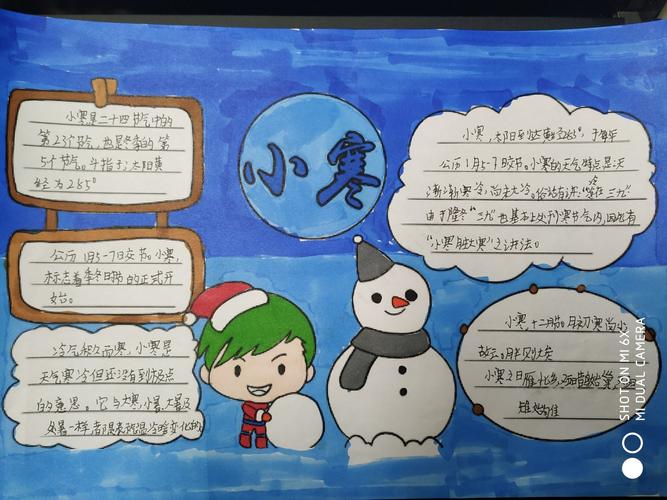 小寒是二十四节气中的
第23个节气,也是冬季的第
5个节气。斗指子;太阳黄
经为285°
公历1月5-7日交节。小寒,
标志着季冬时节的正式开
始。
冷气积久而寒,小寒是
天气寒冷但还没有到极点
的意思。它与大寒、小暑、大暑及
处暑一样,都是表示气温冷暖变化的
小寒
小寒,太阳到达黄经285°,于每年
公历1月5-7日交节。小寒的天气特点是:天
渐渐寒冷,尚未大冷。俗话有讲:"冷在三九"
由于隆冬"三九"也基本上处于小寒节气内,因此有
"小寒胜大寒"之讲法。
小寒,十二月节。月初寒尚小
故云。月半则大矣
小寒之日雁北乡,
SHOT ON MI 6X
MI DUAL CAMERA